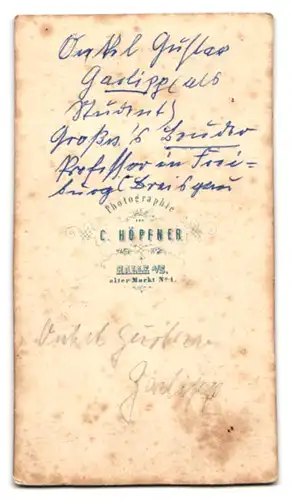 Onkel Gustav
Garlipp (als
Student)
Großv.'s Bruder
Professor in Frei-
burg Breisgau
Photographie
von
C. HÖPFNER
HALLE a/S.
alter Markt No 1.
Onkel Gustav
Garlipp